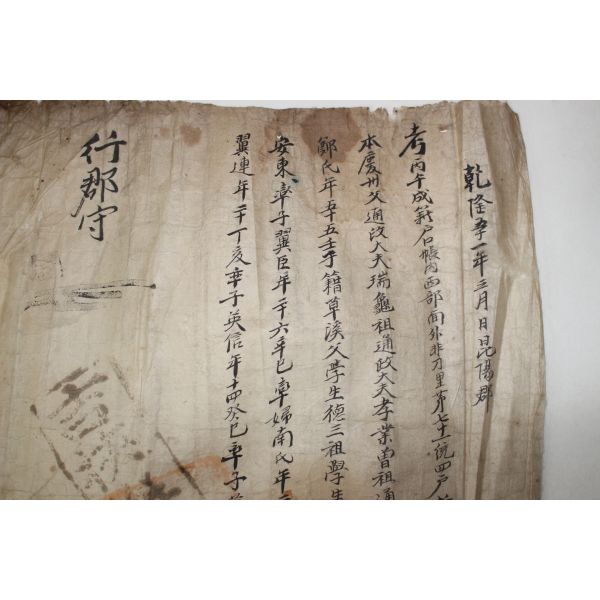 乾隆五十一年三月日昆陽郡
考丙午成籍戶帳內西部面外非刀里第七十一統四戶
本慶州父通政大夫瑞龜祖通政大夫孝業曾祖通
鄭氏年五十五壬子籍草溪父學生德三祖學生
安東率子翼臣年二十六辛巳率婦南氏年二
翼連年二十丁亥率子英信年十四癸巳率子
行郡守